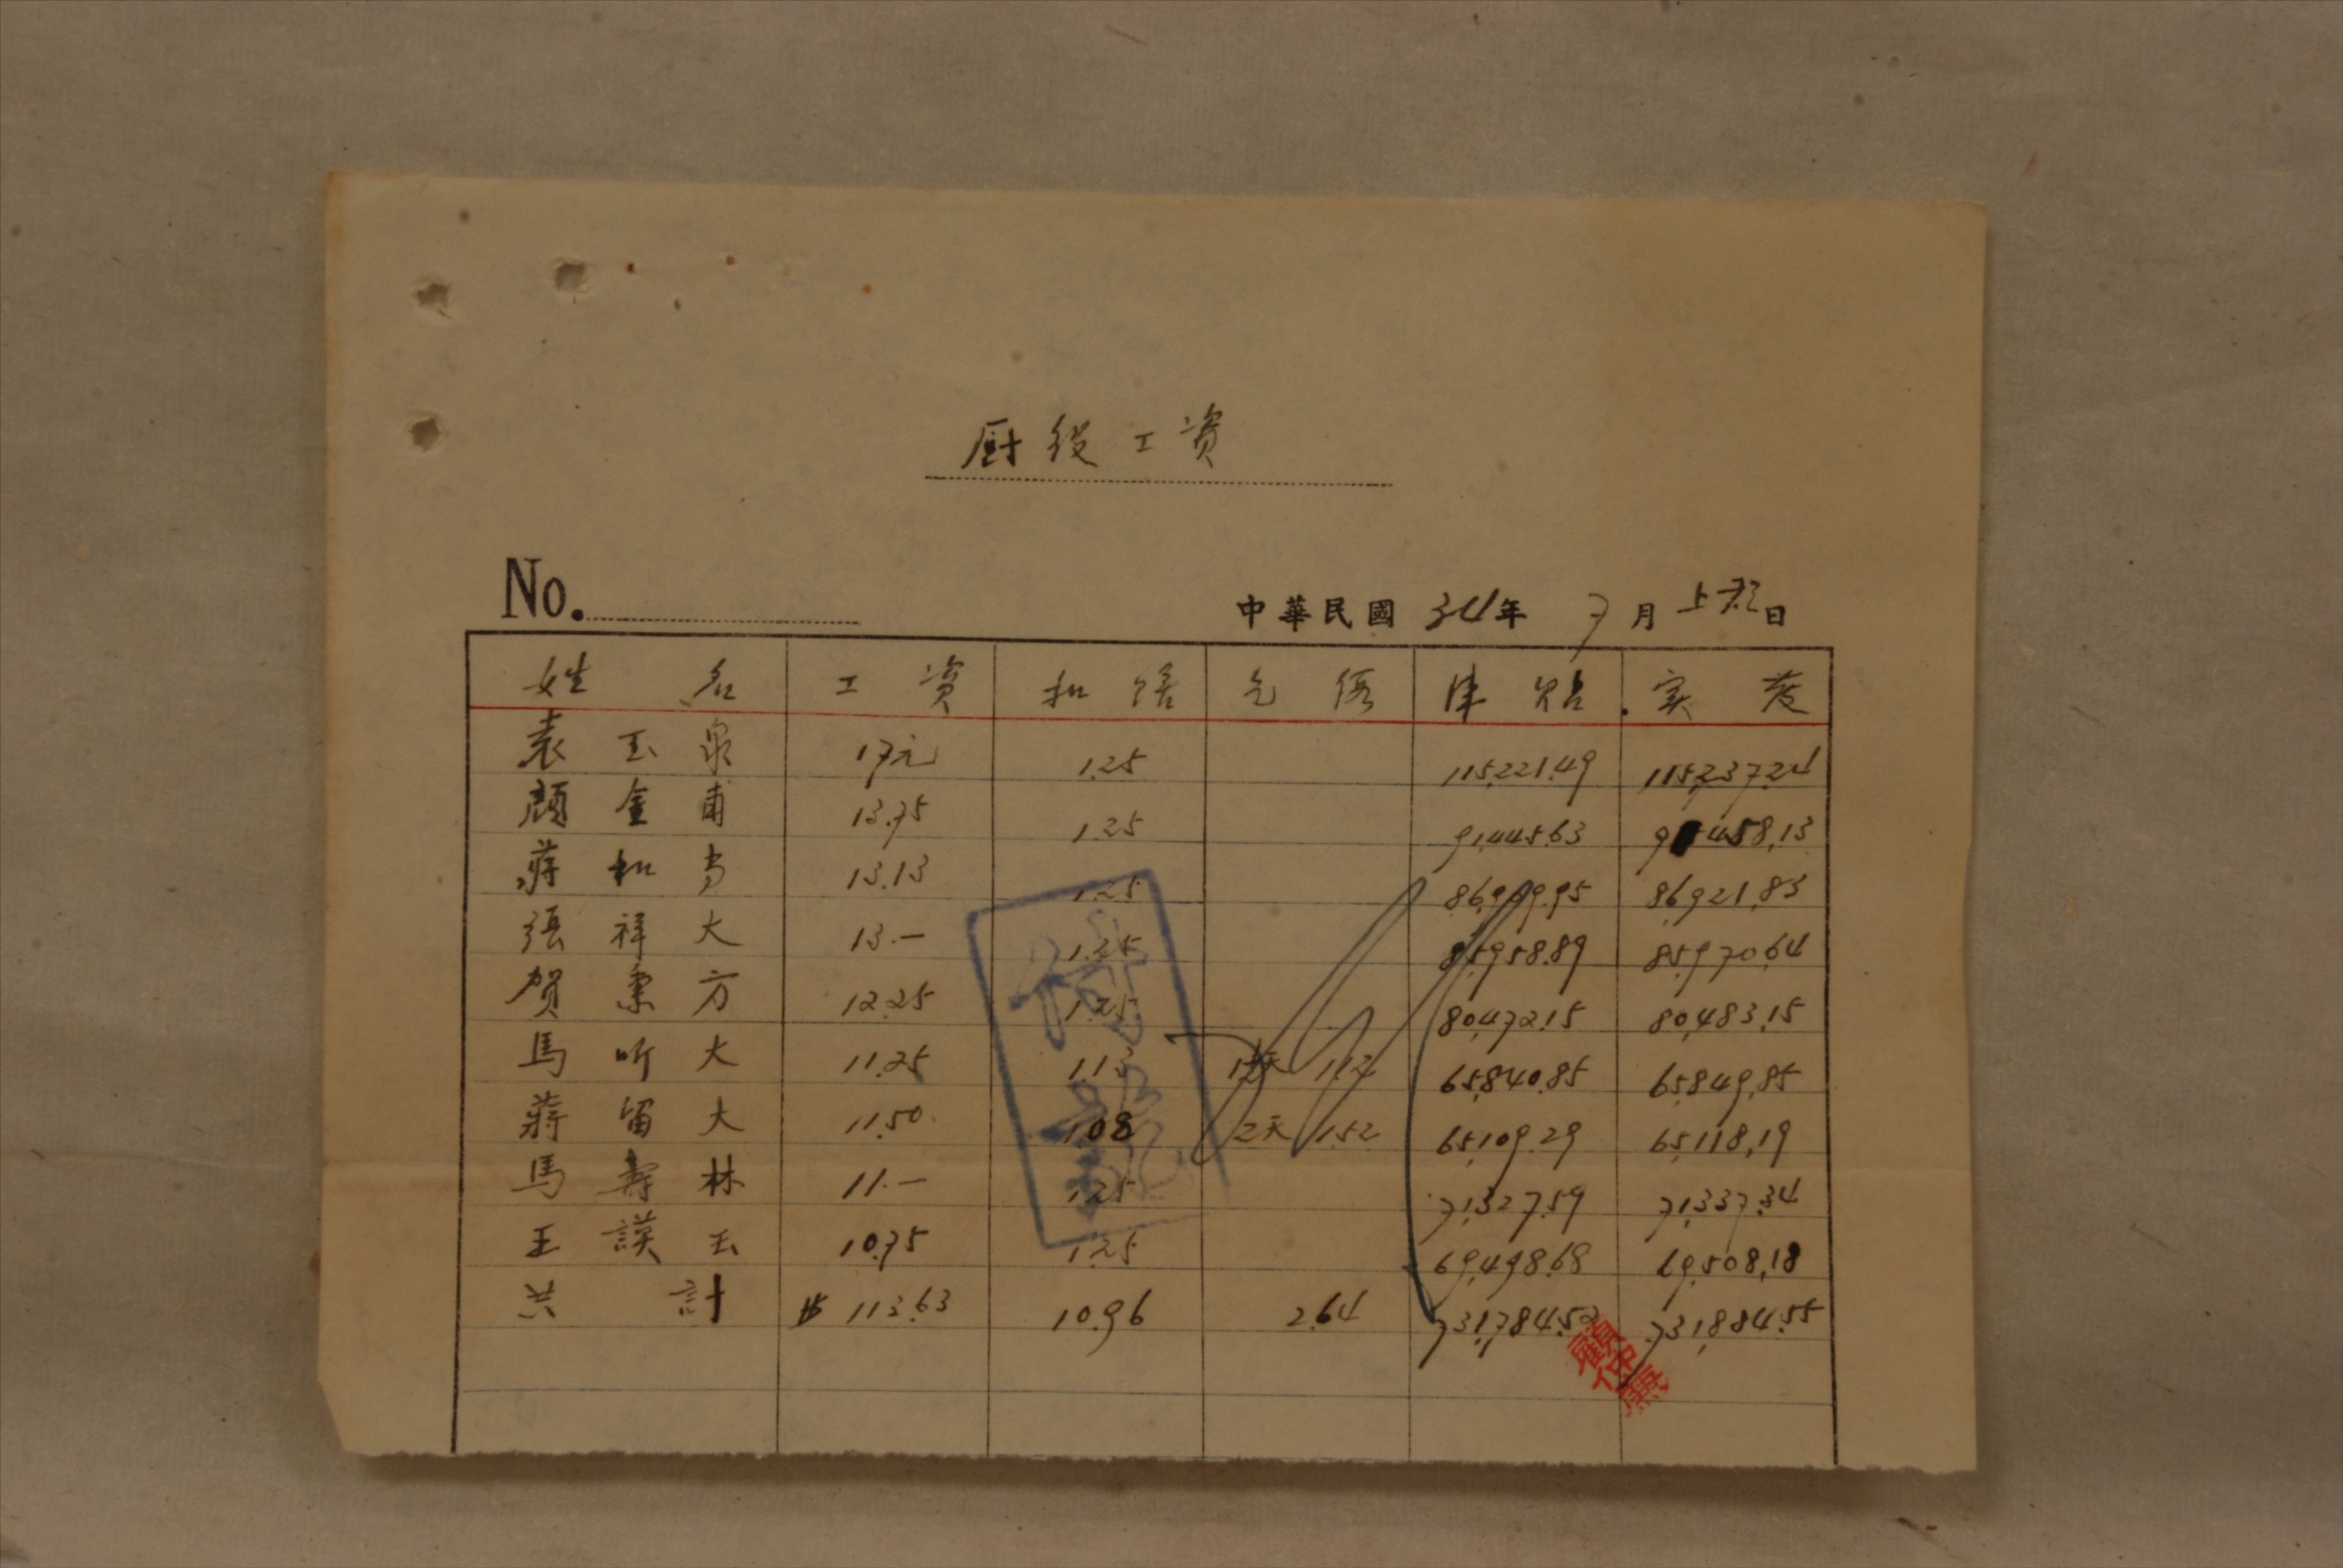 厨役工资
No.
中華民國 34年 7月 上期日
姓名 工资 扣膳 欠伤 津贴 实发
袁玉泉 17元 1.25 115,221.49 115,237.24
顔金甫 13.75 1.25 91,445.63 91,458.13
蒋和尚 13.13 1.25 86,909.95 86,921.83
張祥大 13.— 1.25 85,958.89 85,970.64
贺秉方 12.25 1.25 80,472.15 80,483.15
馬听大 11.25 1.13 1.12 65,840.85 65,849.85
蒋留大 11.50 1.08 2天 1.52 65,109.29 65,118.19
馬寿林 11.— 1.25 71,327.59 71,337.34
王謨玉 10.75 1.25 69,498.68 69,508.18
共計 113.63 10.96 2.64 731,784.52 731,884.55
顧仲廉